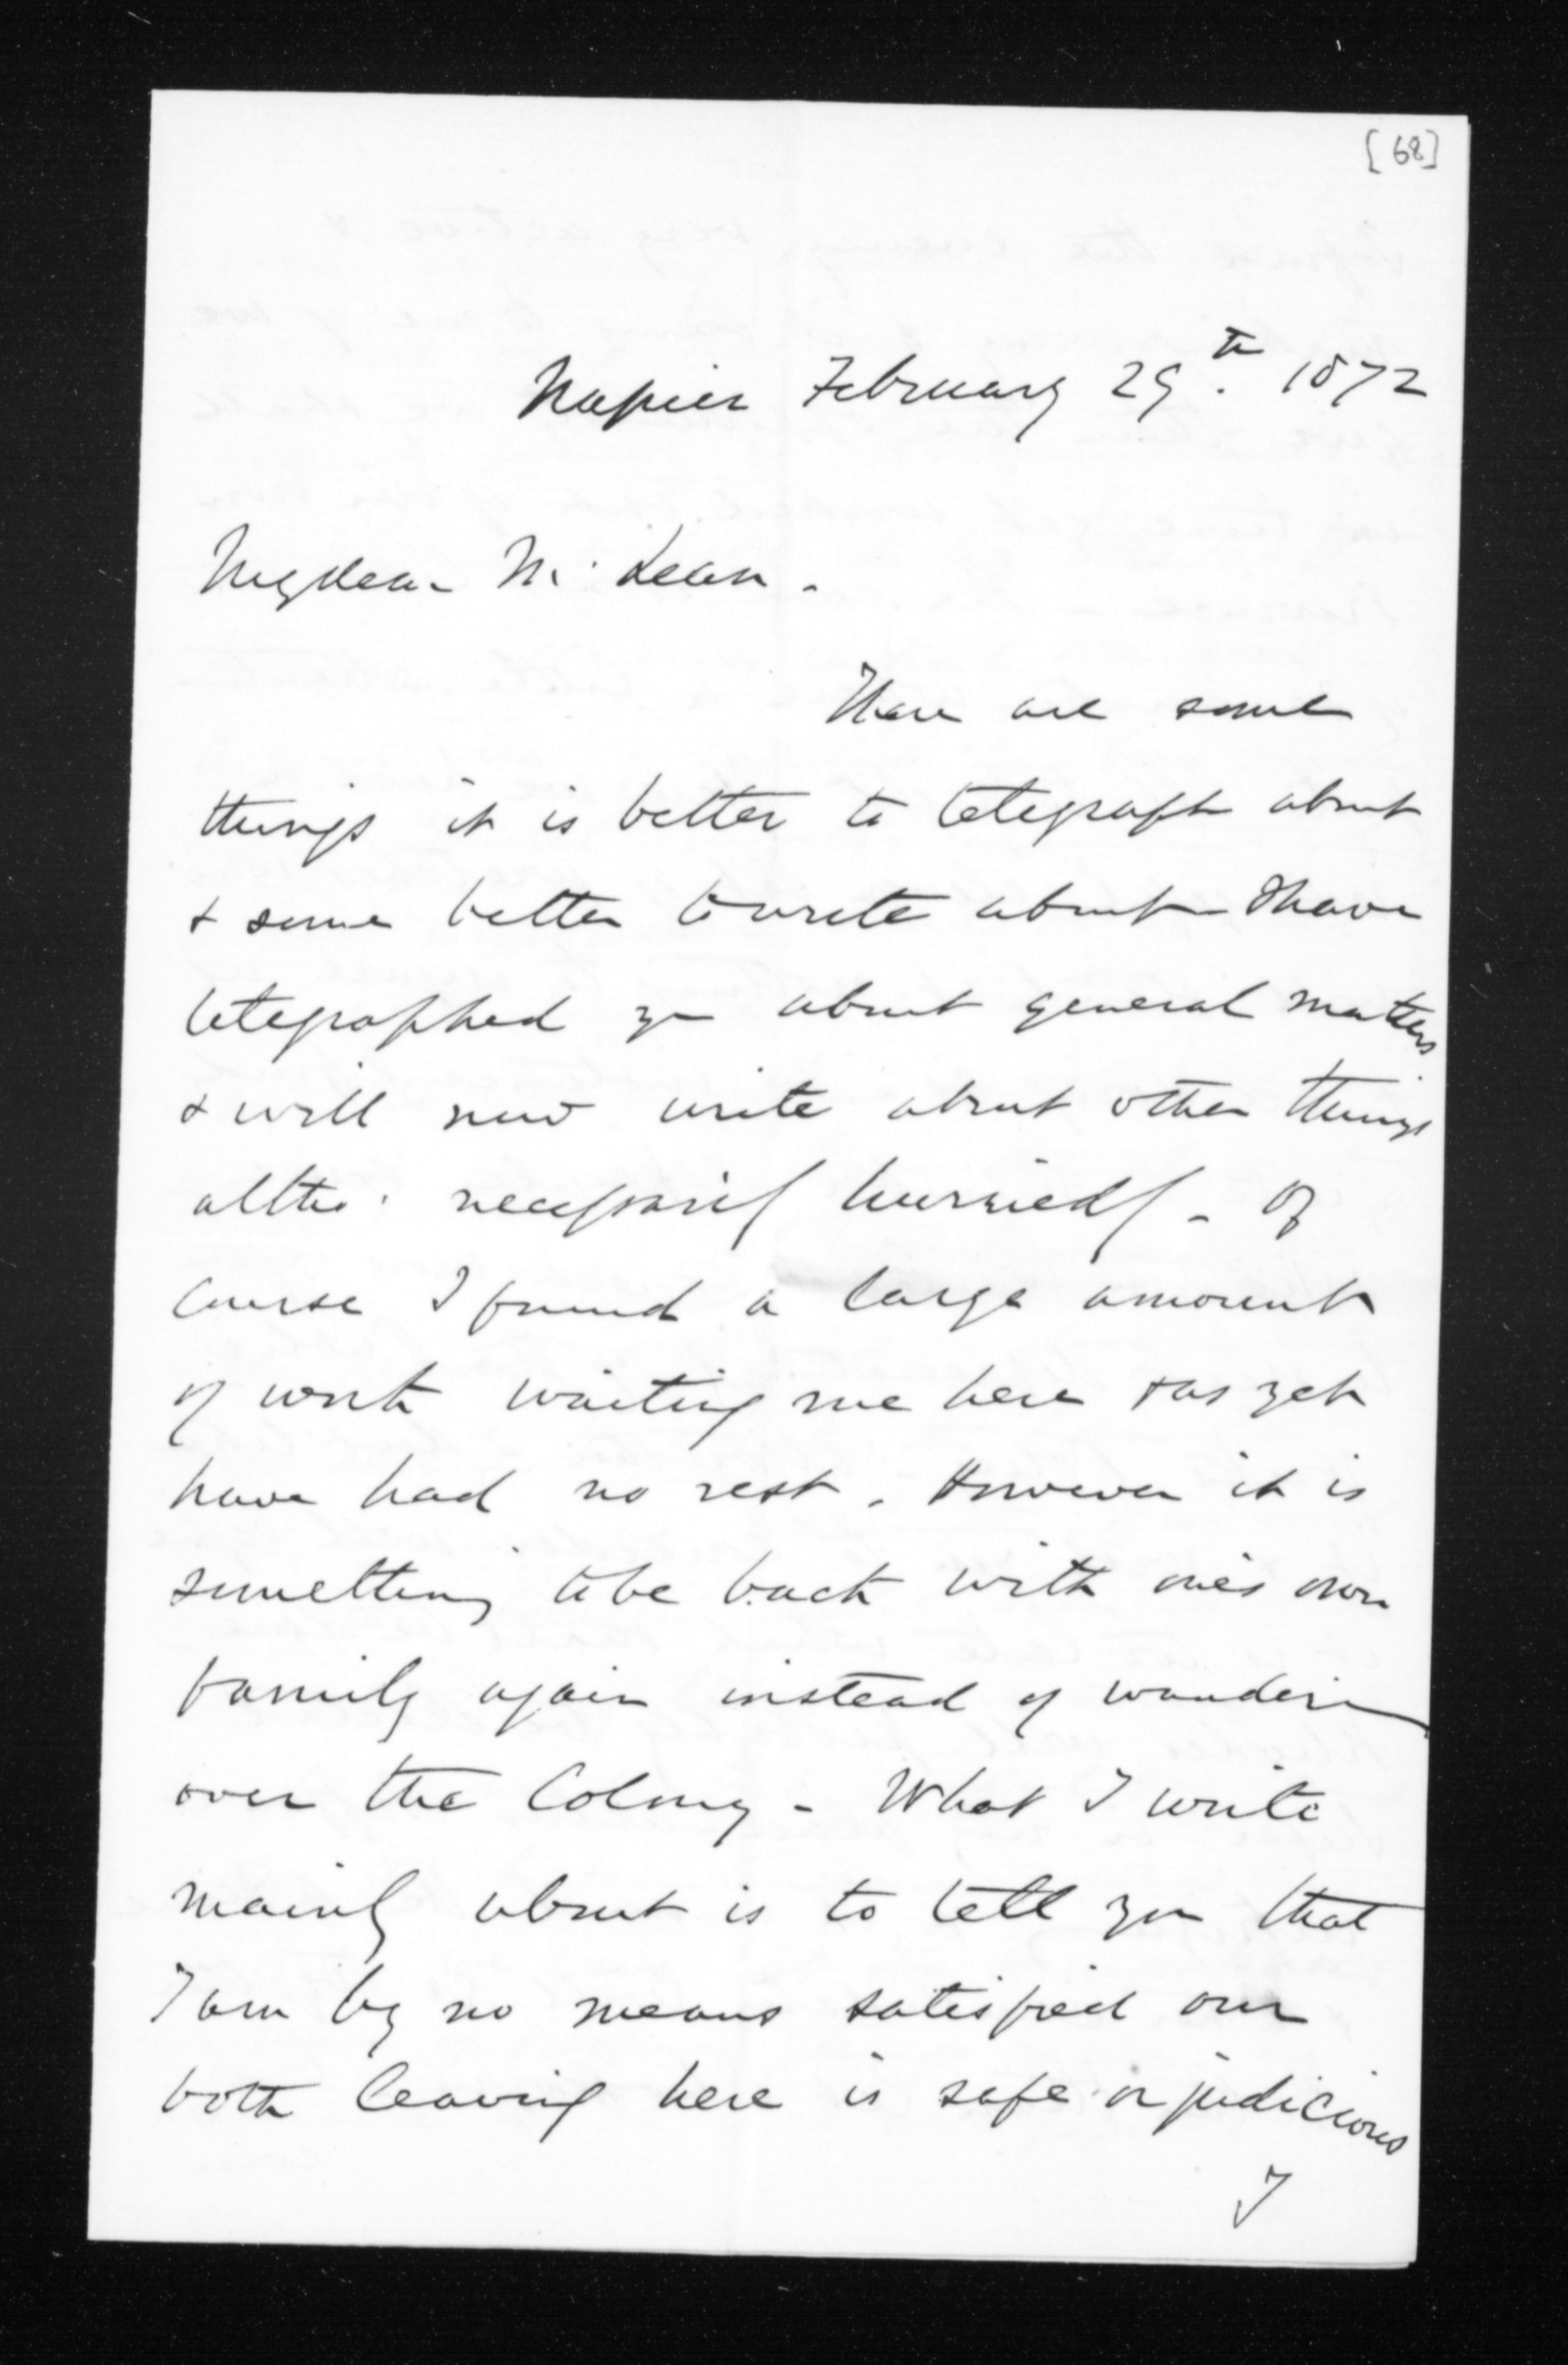 [68]
Napier February 29th. 1872
My dear McLean.
There are some
things it is better to telegraph about
& some better to write about I have
telegraphed you about general matters
& will now write about other things
altho' necessarily hurriedly - Of
course I found a large amount
of work waiting me here & as yet
have had no rest. However it is
something to be back with one's own
family again instead of wandering
over the Colony - What I write
mainly about is to tell you that
I am by no means satisfied our
both leaving here is safe or judicious
I